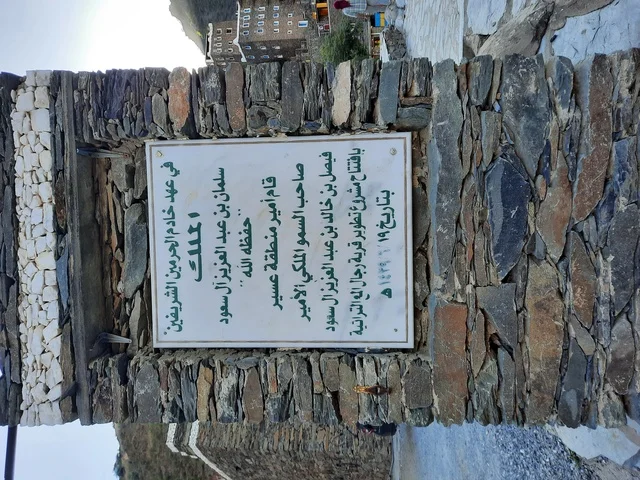 في عهد خادم الحرمين الشريفين
الملك
سلمان بن عبد العزيز آل سعود
حفظه الله
قام أمير منطقة عسير
صاحب السمو الملكي الأمير
فيصل بن خالد بن عبد العزيز آل سعود
بافتتاح مشروع تطوير قرية رجال المع التراثية
بتاريخ ١٩ هـ